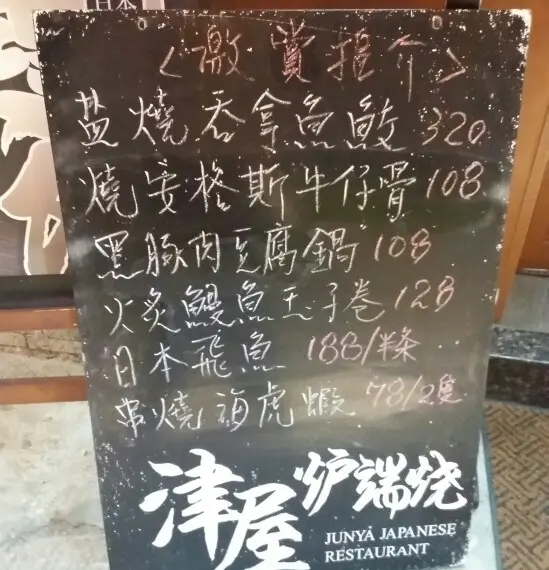 日本
<激賞推介>
盐燒吞拿魚鮫 320
燒安格斯牛仔骨 108
黑豚肉豆腐鍋 108
火炙鰻魚玉子卷 128
日本飛魚 188/半条
串燒海虎蝦 78/2隻
津屋 炉端烧
JUNYA JAPANESE
RESTAURANT